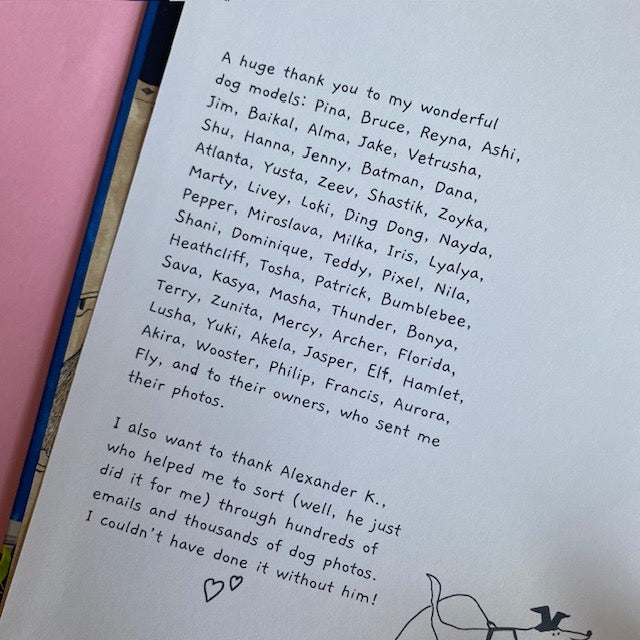 A huge thank you to my wonderful
dog models: Pina, Bruce, Reyna, Ashi,
Jim, Baikal, Alma, Jake, Vetrusha,
Shu, Hanna, Jenny, Batman, Dana,
Atlanta, Yusta, Zeev, Shastik, Zoyka,
Marty, Livey, Loki, Ding Dong, Nayda,
Pepper, Miroslava, Milka, Iris, Lyalya,
Shani, Dominique, Teddy, Pixel, Nila,
Heathcliff, Tosha, Patrick, Bumblebee,
Sava, Kasya, Masha, Thunder, Bonya,
Terry, Zunita, Mercy, Archer, Florida,
Lusha, Yuki, Akela, Jasper, Elf, Hamlet,
Akira, Wooster, Philip, Francis, Aurora,
Fly, and to their owners, who sent me
their photos.
I also want to thank Alexander K.,
who helped me to sort (well, he just
did it for me) through hundreds of
emails and thousands of dog photos.
I couldn't have done it without him!